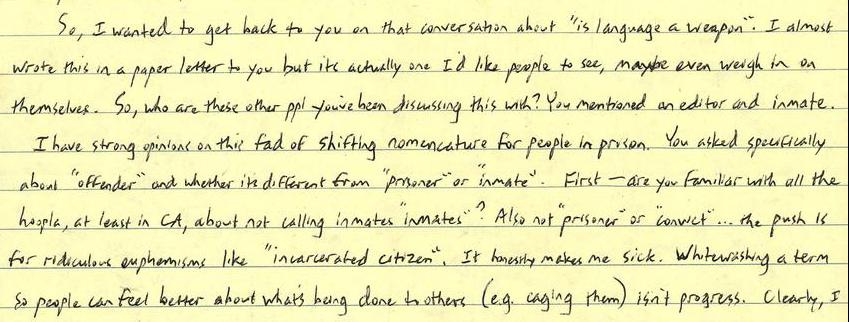 So, I wanted to get back to you on that conversation about "is language a weapon". I almost
wrote this in a paper letter to you but its actually one I'd like people to see, maybe even weigh in on
themselves. So, who are these other ppl you've been discussing this with? You mentioned an editor and inmate.
I have strong opinions on this fad of shifting nomencature for people in prison. You asked specifically
about "offender" and whether its different from "prisoner" or "inmate". First – are you familiar with all the
hoopla, at least in CA, about not calling inmates "inmates"? Also not "prisoner" or "convict"... the push is
for ridiculous euphemisms like "incarcerated citizen". It honestly makes me sick. Whitewashing a term
so people can feel better about what's being done to others (e.g. caging them) isn't progress. Clearly, I